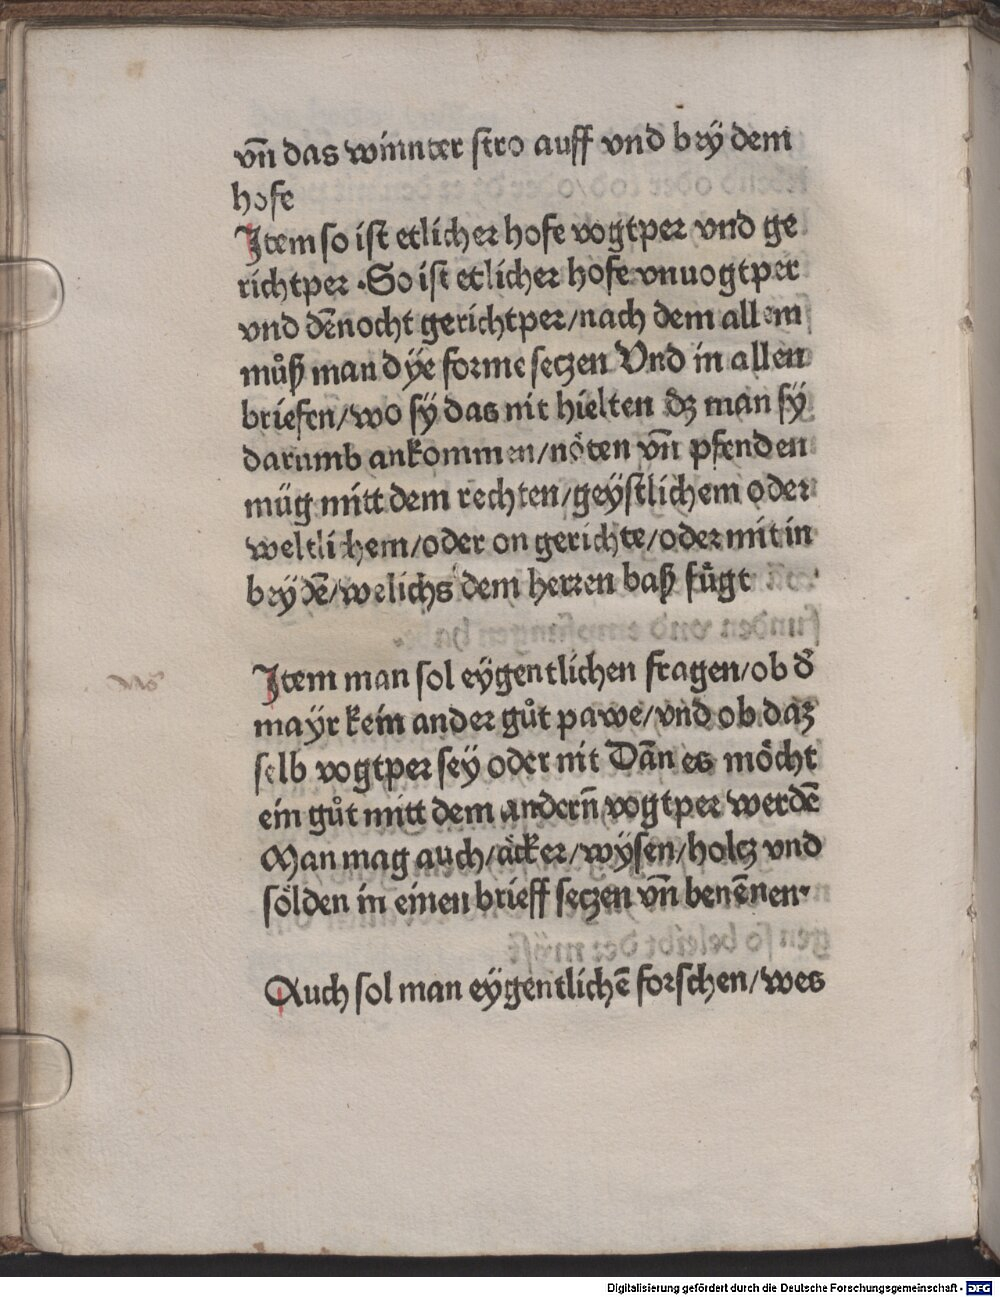 vn̄ das winnter stro auff vnd beÿ dem
hofe
Item so ist etlicher hofe vogtper vnd ge
richtper ·So ist etlicher hofe vnuogtper
vnd dēnocht gerichtper/nach dem allem
můß man dÿe forme seczen Vnd in allen
briefen/wo sÿ das nit hielten dz man sÿ
darumb ankommen/nöten vn̄ pfenden
müg mitt dem rechten/geÿstlichem oder
weltlichem/oder on gerichte/oder mit in
beÿdē/welichs dem herren baß fůgt
Item man sol eÿgentlichen fragen/ob d̓
maÿr kein ander gůt pawe/vnd ob daz
selb vogtper seÿ oder nit Dān es möcht
ein gůt mitt dem andern̄ vogtper werdē
Man mag auch/äcker/wÿsen/holcz vnd
sölden in einen brieff seczen vn̄ benēnen·
Auch sol man eÿgentlichē forschen/wes
Digitalisierung gefördert durch die Deutsche Forschungsgemeinschaft - DFG